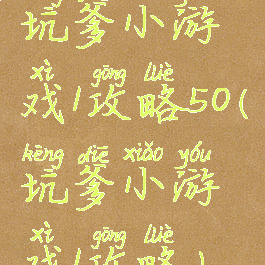 坑爹小游
xì gōng lüè
戏1攻略50(
kēng diē xiǎo yóu
坑爹小游
xì gōng lüè
戏1攻略)